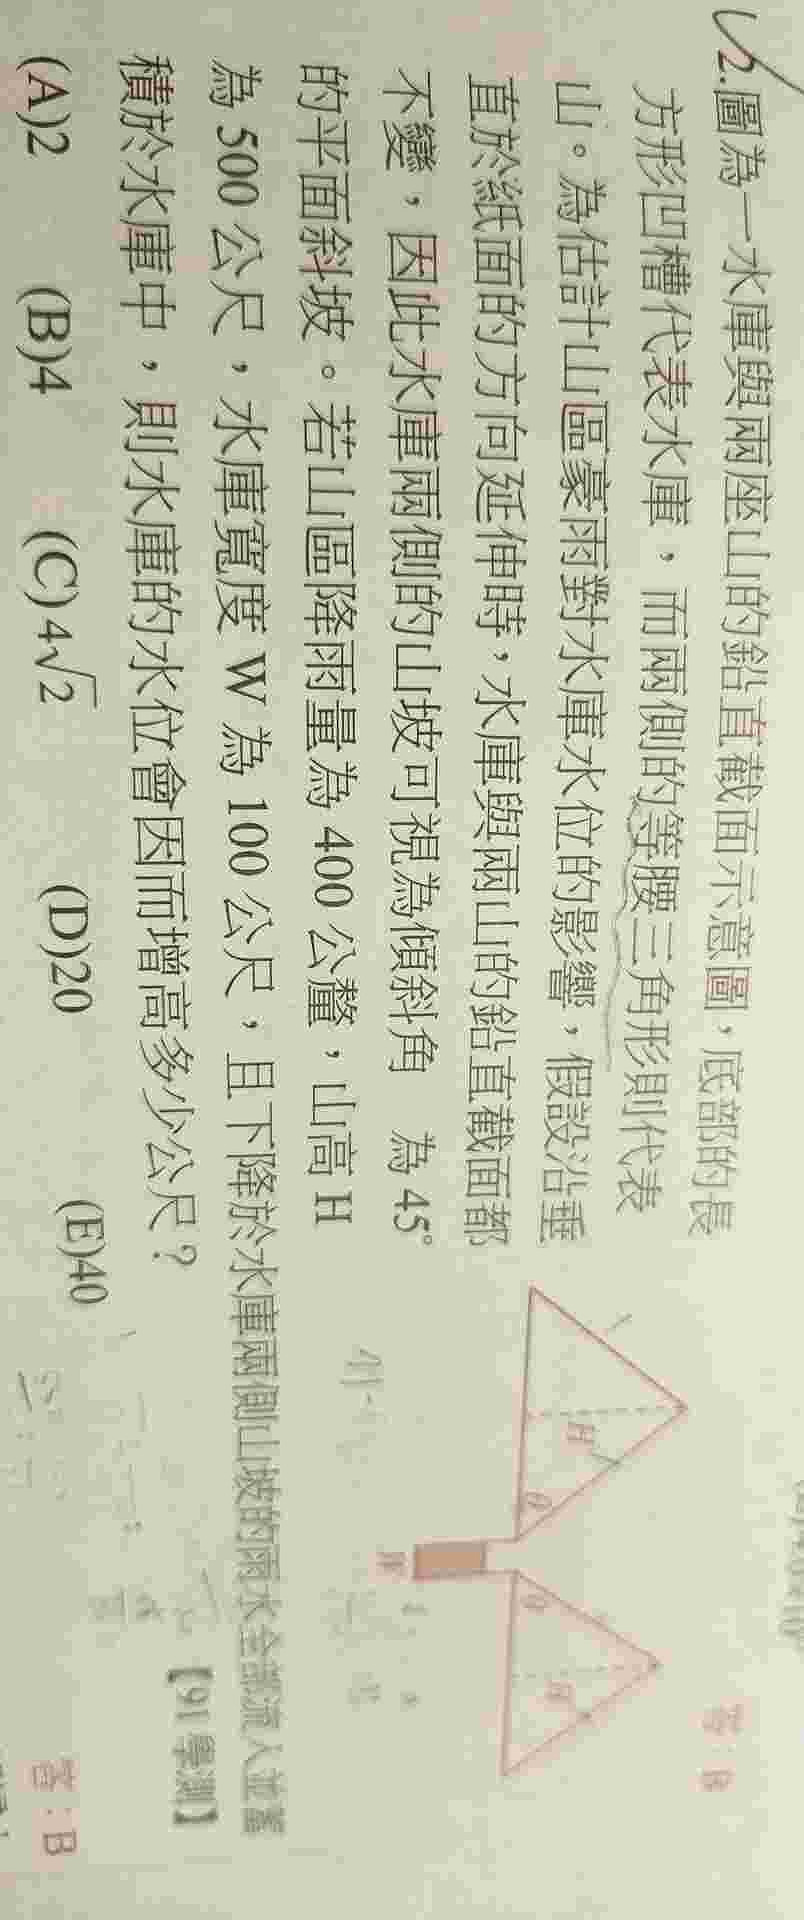 2.圖為一水庫與兩座山的鉛直截面示意圖，底部的長
方形凹槽代表水庫，而兩側的等腰三角形則代表
山。為估計山區豪雨對水庫水位的影響，假設沿垂
直於紙面的方向延伸時，水庫與兩山的鉛直截面都
不變，因此水庫兩側的山坡可視為傾斜角 為45°
的平面斜坡。若山區降雨量為 400 公釐，山高 H
為 500 公尺，水庫寬度 W 為 100 公尺，且下降於水庫兩側山坡的雨水全部流入並蓄
積於水庫中，則水庫的水位會因而增高多少公尺？
【91 學測】
(A)2 (B)4 (C)4√2 (D)20 (E)40
答：B
H
θ
W
θ
H
答：B